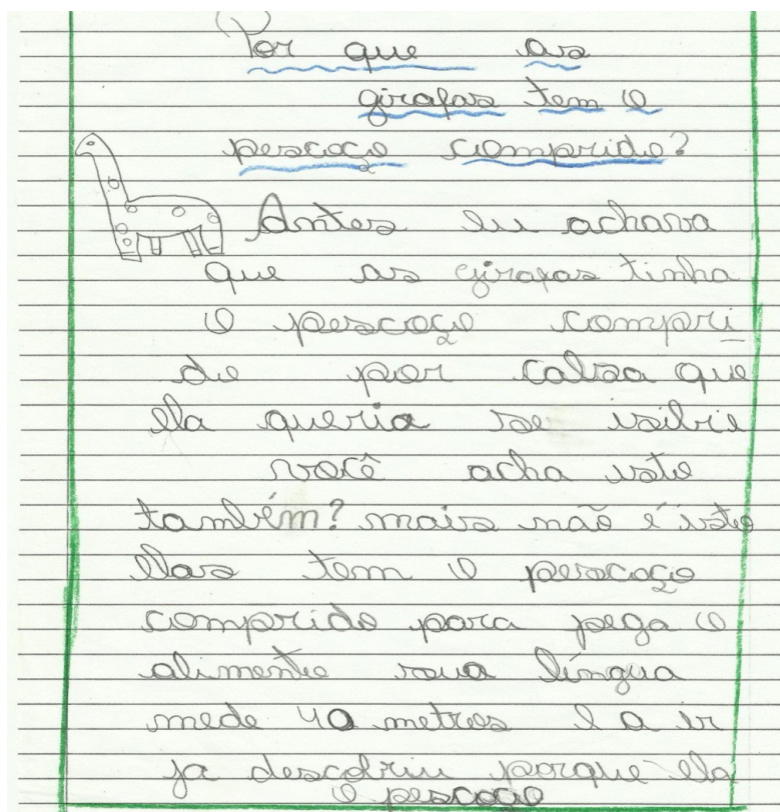 Por que as
girafas tem o
pescoço comprido?
Antes eu achava
que as girafas tinha
o pescoço compri
do por calsa que
ela queria se isibir
você acha isto
também? mais não é isto
Elas tem o pescoço
comprido para pega o
alimento sua língua
mede 40 metros e a ir
ja descobriu porque ela
o pescoço